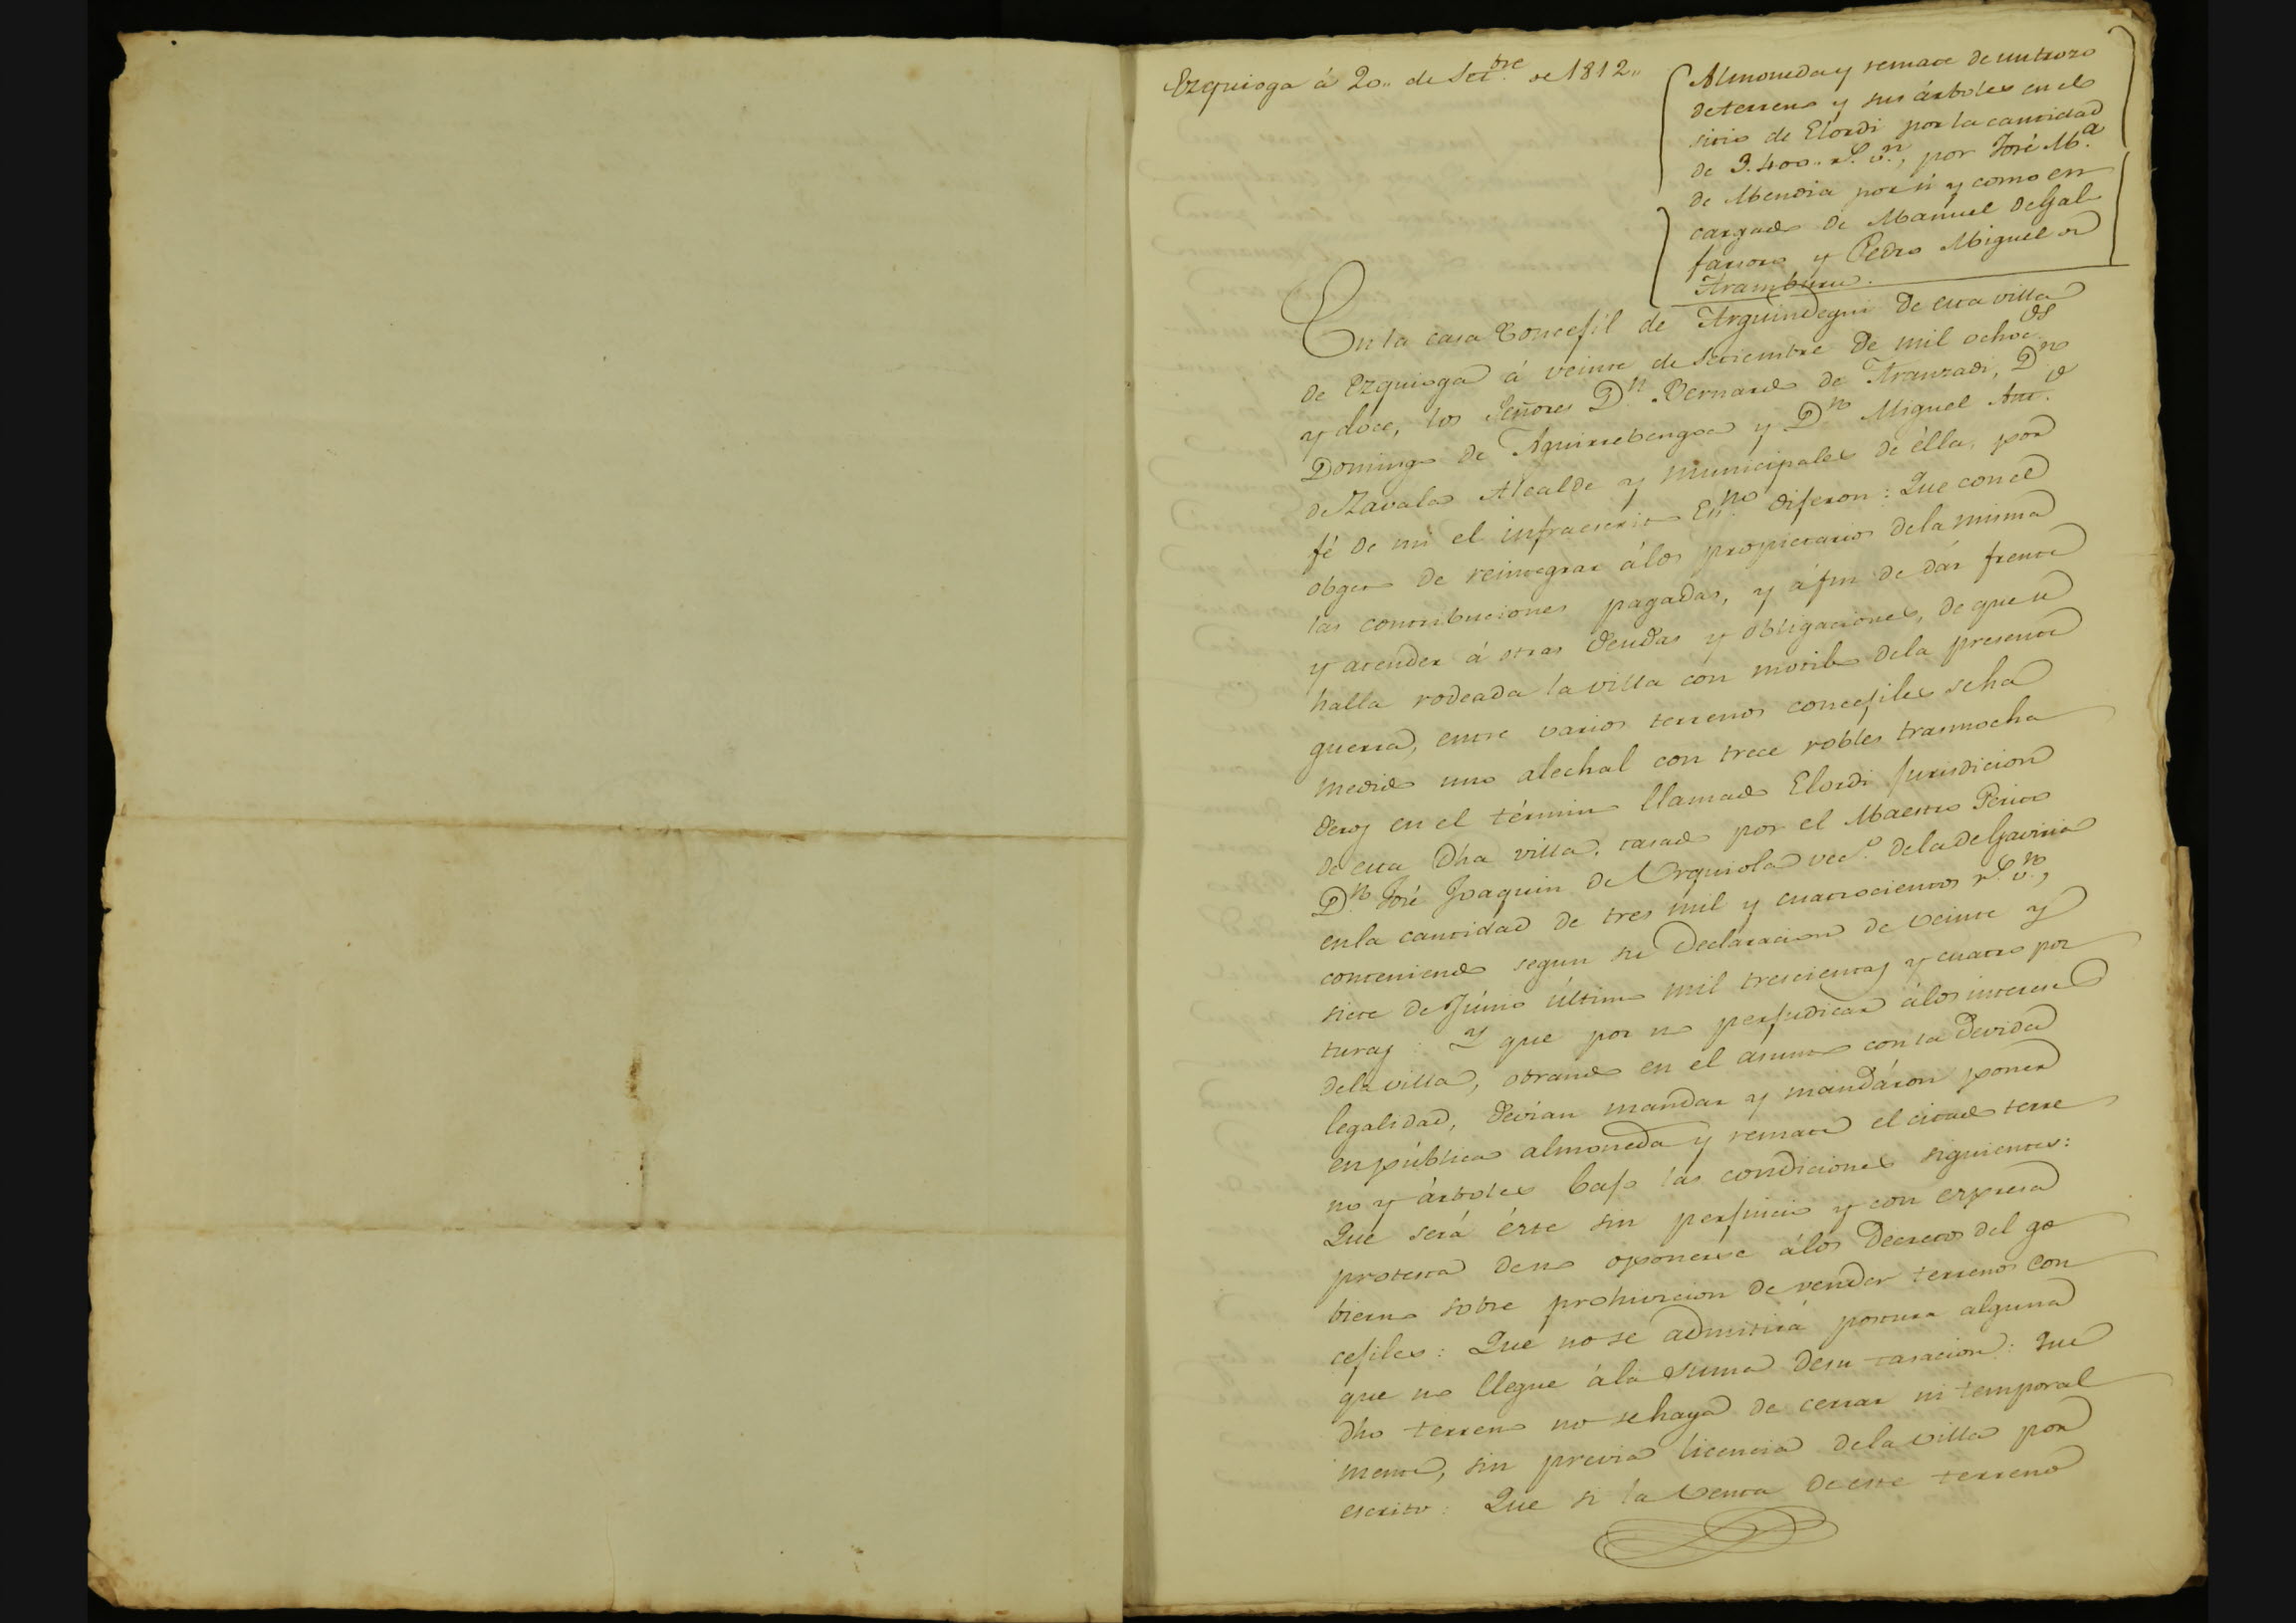 Ezquioga á 20,, de Set.bre de 1812,,
Almoneda y remate de un trozo
de terreno y sus árboles en el
sitio de Elordi por la cantidad
de 3.400,, r.s v.n, por José M.a
de Mendia por si y como en
cargado de Manuel de Gal
farsoro y Pedro Miguel de
Aramburu.
En la casa Concejil de Arguindegui de esta villa
de Ezquioga á veinte de Setiembre de mil ochoc.os
y doce, los Señores D.n Bernardo de Aranzadi, D.n
Domingo de Aguirrebengoa y D.n Miguel Ant.o
de Zavala Alcalde y Municipales de élla, por
fé de mi el infraescrito Es.no dijeron: Que con el
obgeto de reintegrar á los propietarios de la misma
las contribuciones pagadas, y á fin de dár frente
y atender á otras deudas y obligaciones, de que se
halla rodeada la villa con motibo de la presente
guerra, entre varios terrenos concejiles se ha
medido uno alechal con trece robles trasmocha
deros en el término llamado Elordi Jurisdicion
de esta Dha villa, tasado por el Maestro Périto
D.n José Joaquin de Urquiola vec.o de la de Gaviria
en la cantidad de tres mil y cuatrocientos r.s v.n,
conteniendo segun su Declaracion de veinte y
siete de Júnio último mil trescientas y cuatro pos
turas: Y que por no perjudicar á los interese
de la villa, obrando en el asunto con la Devida
legalidad, devian mandar y mandáron poner
en pública almoneda y remate el citado terre
no y árboles bajo las condiciones siguientes:
Que será éste sin perjuicio y con expresa
protesta de no oponerse á los Decretos del go
bierno sobre prohivicion de vender terrenos con
cejiles: Que no se admitirá postura alguna
que no llegue á la suma de su tasacion: Que
Dho terreno no se haya de cerrar ni temporal
mente, sin previa licencia de la villa por
escrito: Que si la venta de este terreno